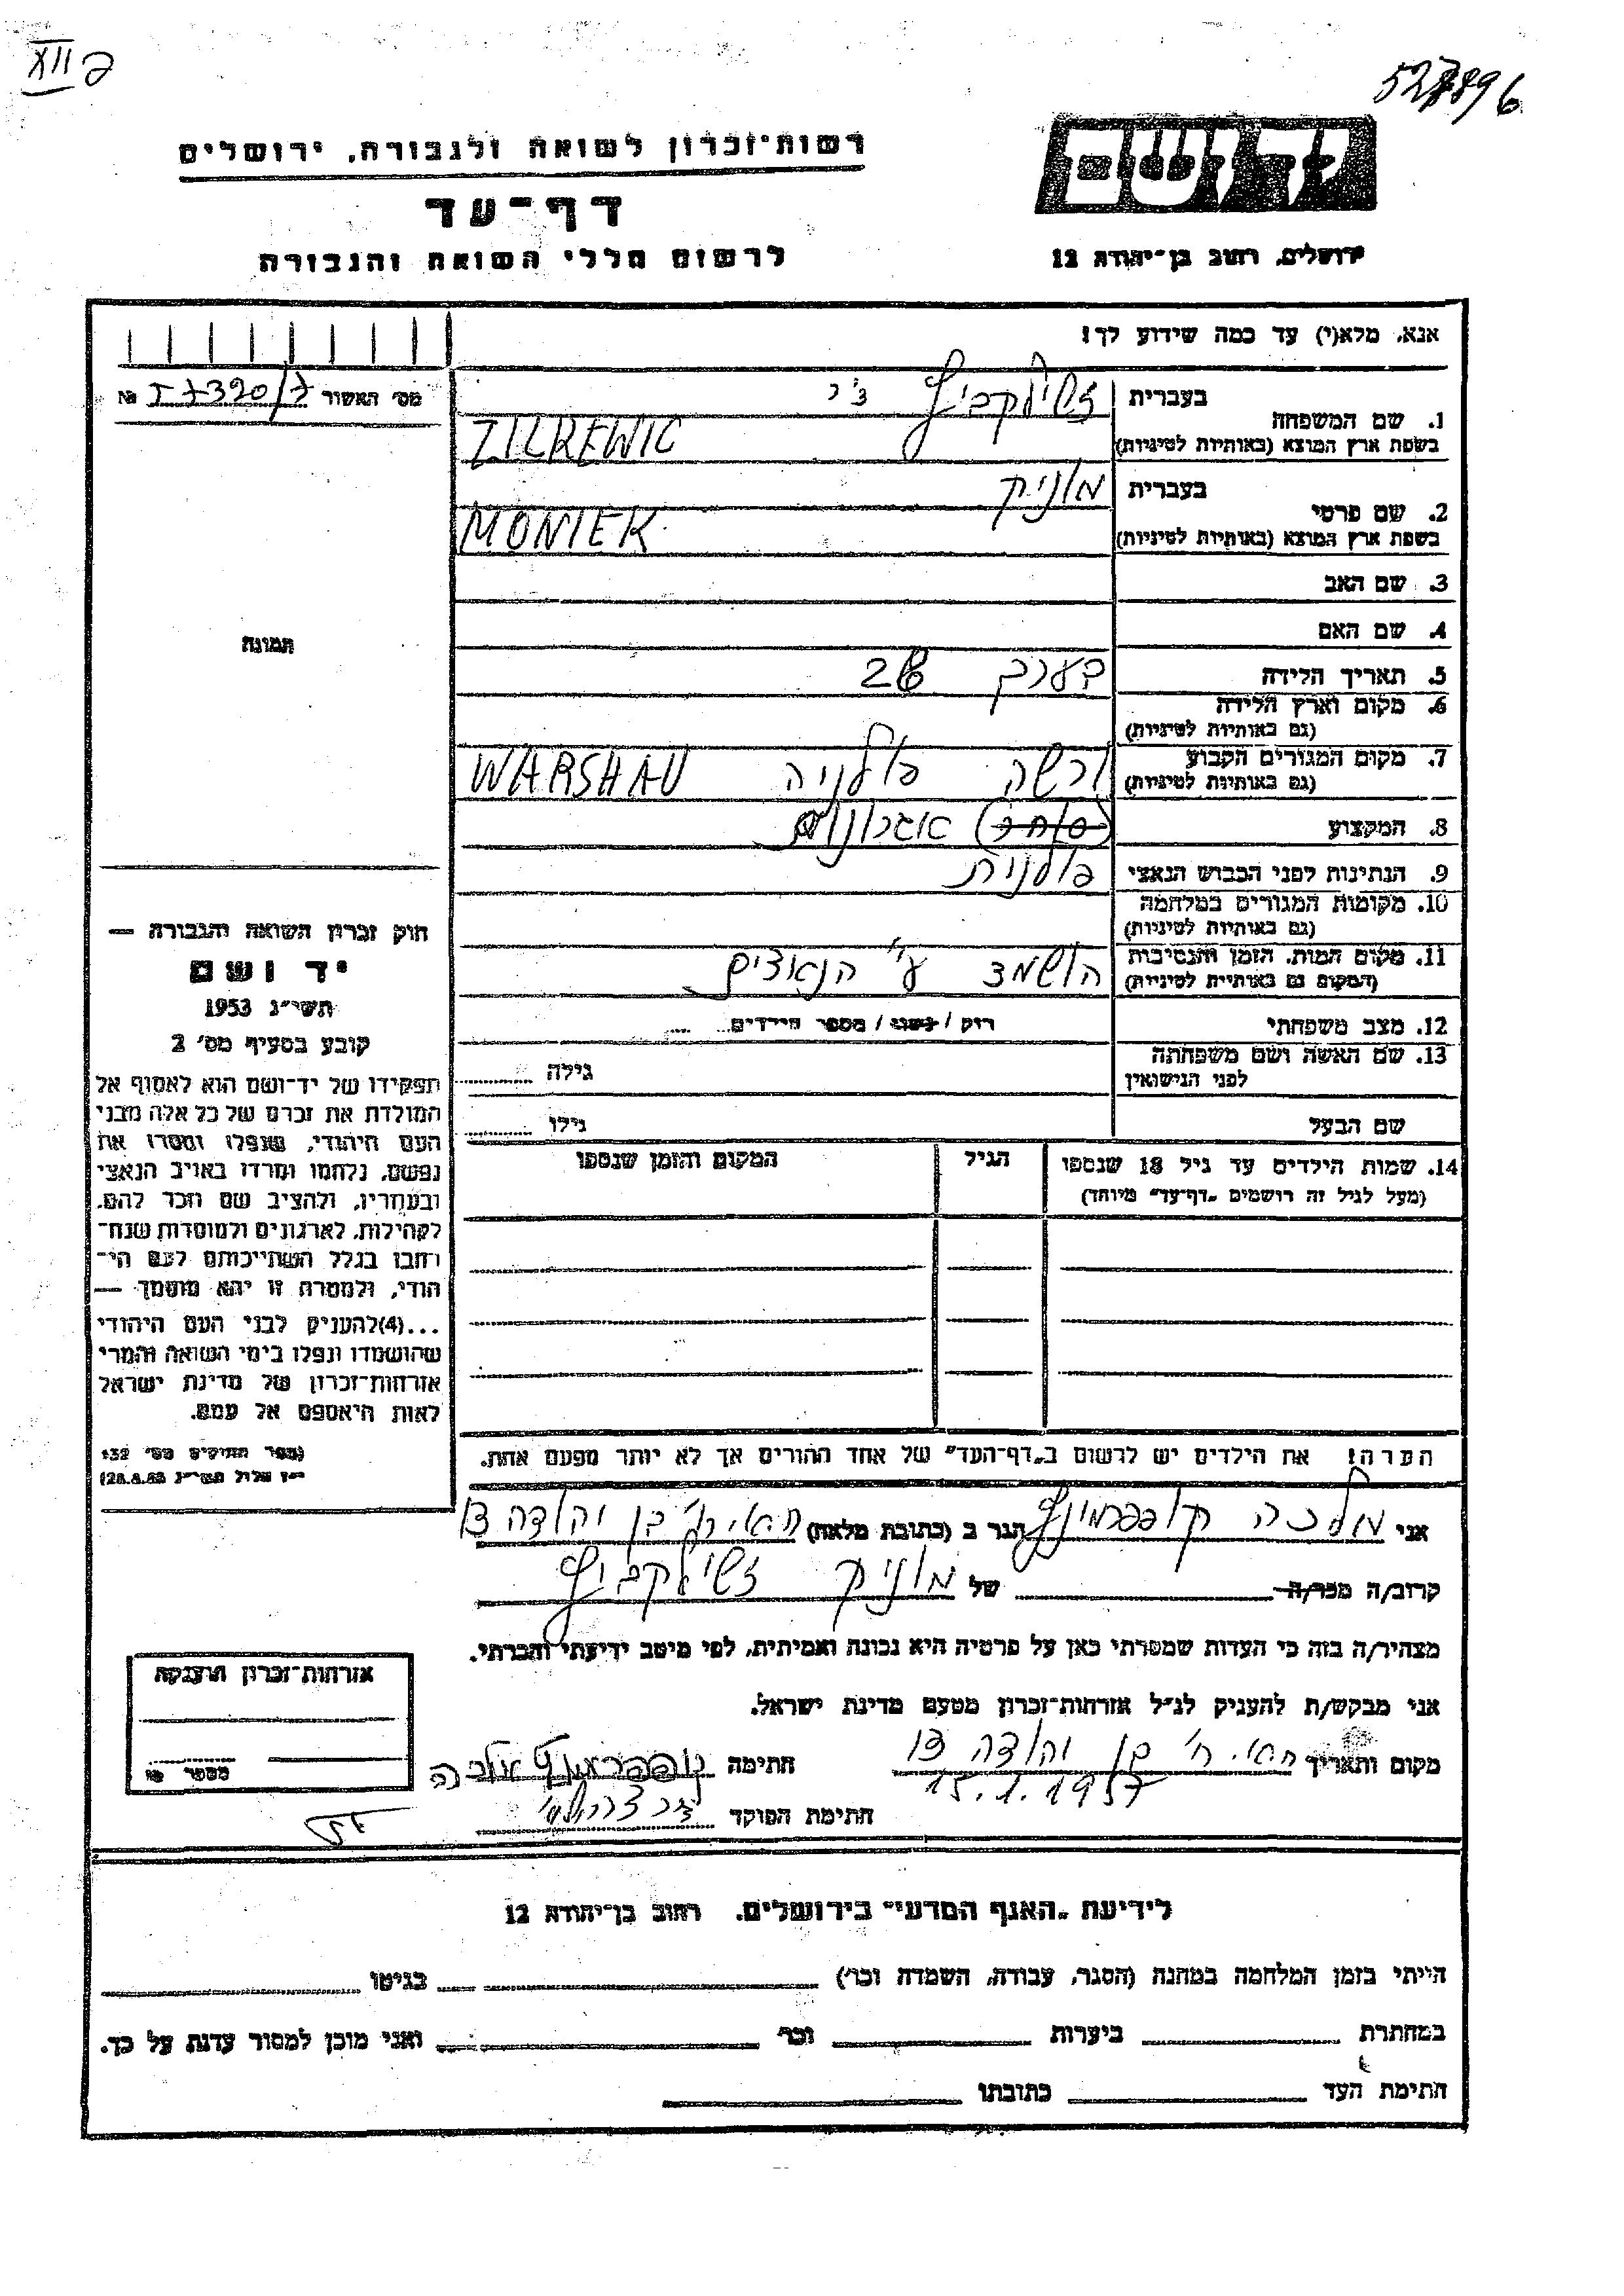 XII
527896
יד ושם
רשות־זכרון לשואה ולגבורה, ירושלים
דף־עד
לרשום חללי השואה והגבורה
ירושלים, רחוב בן־יהודה 12
אנא, מלא(י) עד כמה שידוע לך!
מס׳ האשור № I 7390/7
1. שם המשפחה
בעברית
בשפת ארץ המוצא (באותיות לטיניות)
ZILKEWIC
2. שם פרטי
בעברית מוניק
בשפת ארץ המוצא (באותיות לטיניות)
MONIEK
3. שם האב
4. שם האם
תמונה
5. תאריך הלידה בערך
6. מקום וארץ הלידה
(גם באותיות לטיניות)
7. מקום המגורים הקבוע
(גם באותיות לטיניות)
ורשה פולניה WARSHAU
8. המקצוע
9. הנתינות לפני הכבוש הנאצי פולנית
10. מקומות המגורים במלחמה
(גם באותיות לטיניות)
11. מקום המות, הזמן והנסיבות
(המקום גם באותיות לטיניות)
הושמד ע״י הנאצים
12. מצב משפחתי רוק / נשוי / מספר הילדים
13. שם האשה ושם משפחתה
לפני הנישואין
גילה
שם הבעל גילו
14. שמות הילדים עד גיל 18 שנספו
(מעל לגיל זה רושמים „דף־עד״ מיוחד)
הגיל
המקום והזמן שנספו
חוק זכרון השואה והגבורה —
יד ושם
תשי״ג 1953
קובע בסעיף מס׳ 2
תפקידו של יד־ושם הוא לאסוף אל
המולדת את זכרם של כל אלה מבני
העם היהודי, שנפלו ומסרו את
נפשם, נלחמו ומרדו באויב הנאצי
ובעוזריו, ולהציב שם וזכר להם,
לקהילות, לארגונים ולמוסדות שנח־
רחבו בגלל השתייכותם לעם הי־
הודי, ולמטרה זו יהא מוסמך —
...(4)להעניק לבני העם היהודי
שהושמדו ונפלו בימי השואה והמרי
אזרחות־זכרון של מדינת ישראל
לאות היאספם אל עמם.
(ספר החוקים מס׳ 132
י״ז אלול תשי״ג 28.8.53)
הערה! את הילדים יש לרשום ב„דף־העד״ של אחד ההורים אך לא יותר מפעם אחת.
אני מלכה הגר ב (כתובת מלאה) בן יהודה
קרוב/ה מכר/ה של מוניק
מצהיר/ה בזה כי העדות שמסרתי כאן על פרטיה היא נכונה ואמיתית, לפי מיטב ידיעתי והכרתי.
אני מבקש/ת להעניק לנ״ל אזרחות־זכרון מטעם מדינת ישראל.
מקום ותאריך בן יהודה
15.1.1957
חתימה
חתימת הפוקד
אזרחות־זכרון הוענקה
מספר
לידיעת „האגף המדעי״ בירושלים, רחוב בן־יהודה 12
הייתי בזמן המלחמה במחנה (הסגר, עבודה, השמדה וכו׳) בגיטו
במחתרת ביערות וכו׳ ואני מוכן למסור עדות על כך.
חתימת העד כתובתו